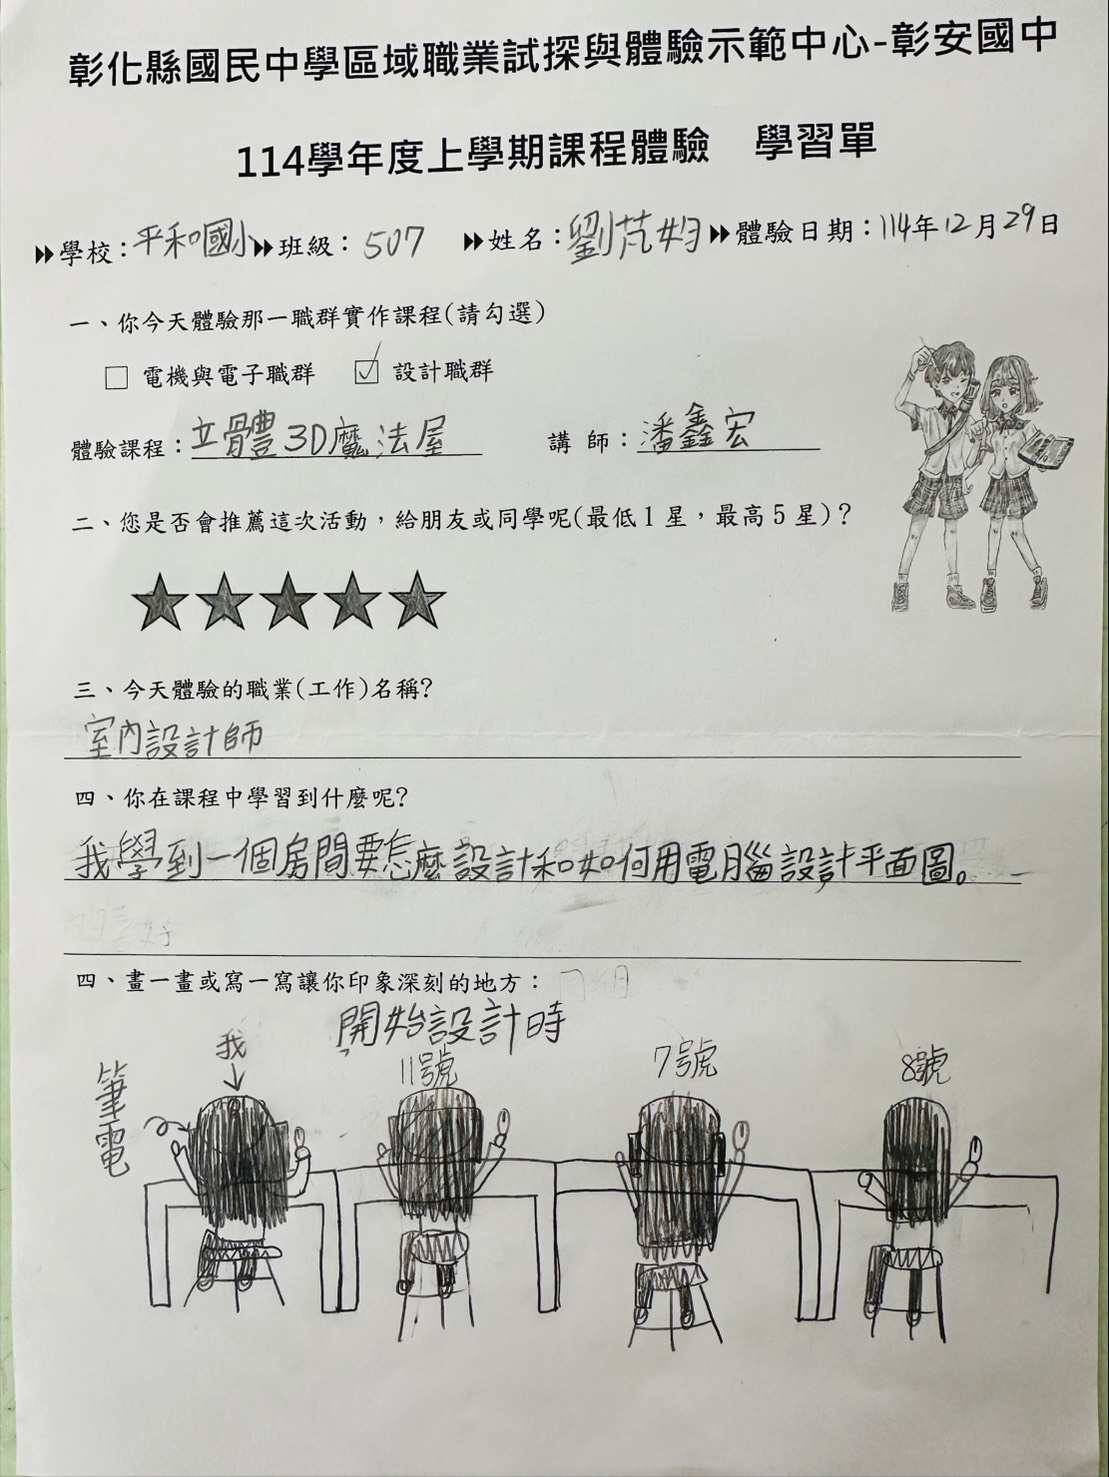 彰化縣國民中學區域職業試探與體驗示範中心-彰安國中
114學年度上學期課程體驗　學習單
學校：平和國小 班級：507 姓名：劉芃妁 體驗日期：114年12月29日
一、你今天體驗那一職群實作課程(請勾選)
□ 電機與電子職群 ☑ 設計職群
體驗課程：立體3D魔法屋 講 師：潘鑫宏
二、您是否會推薦這次活動，給朋友或同學呢(最低1星，最高5星)？
★★★★★
三、今天體驗的職業(工作)名稱?
室內設計師
四、你在課程中學習到什麼呢?
我學到一個房間要怎麼設計和如何用電腦設計平面圖。
四、畫一畫或寫一寫讓你印象深刻的地方：
開始設計時
我
11號
7號
8號
筆電